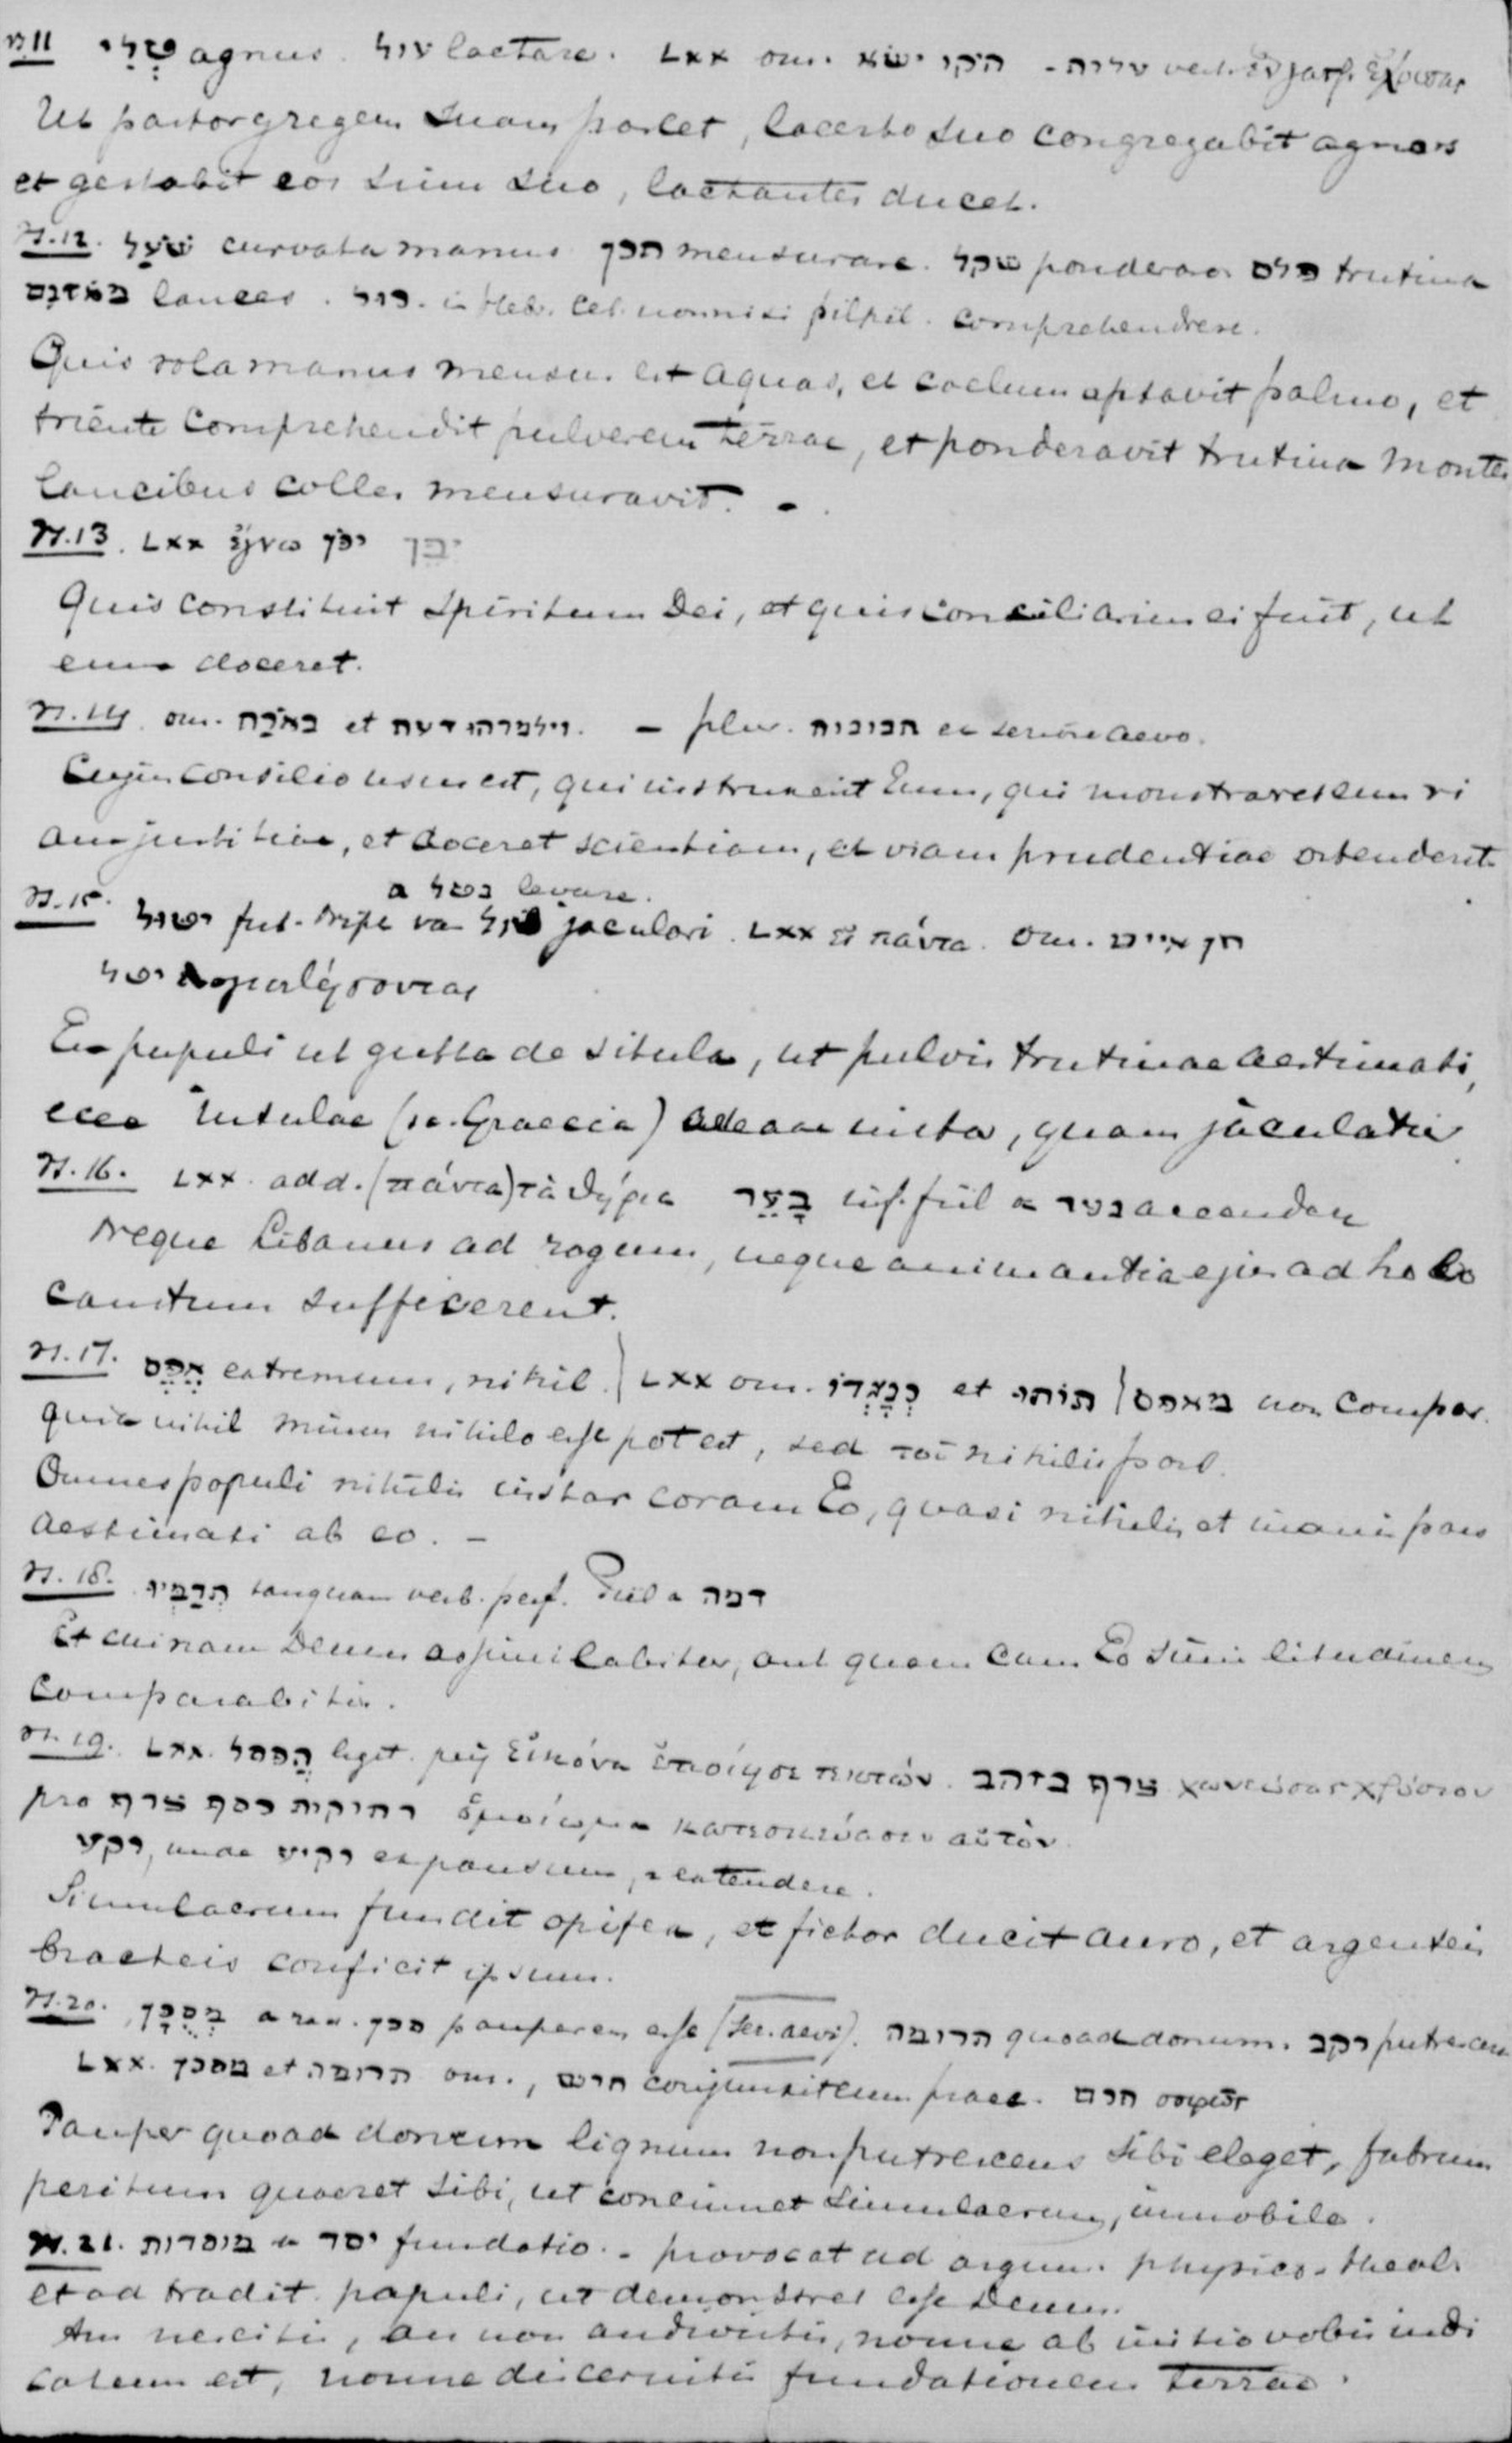 n 11 טְלִי agnus. עול lactare. LXX om. חיקו ישא - עלות vert. ἐν γαστρὶ ἐχούσας
Ut pastor gregem suam pascet, lacerto suo congregabit agnos
et gestabit eos sinu suo, lactantes ducet.
n. 12. שֹׁעַל curvata manus תכן mensurare. שקל ponderare פלס trutina
מאזנים lances. כול. in Hebr. Cet. nonnisi pilpil. comprehendere.
Quis vola manus mensus est aquas, et coelum aptavit palmo, et
triente comprehendit pulverem terrae, et ponderavit trutina montes
lancibus colles mensuravit. -
n. 13. LXX ἔγνω יכן יבן
Quis constituit spiritum Dei, et quis consiliarius ei fuit, ut
eum doceret.
n. 14 om. באֹרַח et וילמדהו דעת. - plur. תבונות ex seriore aevo.
Cujus consilio usus est, qui instruxerit Eum, qui monstraret eum vi
am justitiae, et doceret scientiam, et viam prudentiae ostenderit
a נטל levare.
n. 15. יטול fut. טול jaculari. LXX εἰ πάντα. om. הן איים
יטל λογισθήσονται
En populi ut gutta de situla, ut pulvis trutinae aestimati,
ecce insulae (sc. Graecia) instar, quam jaculatur
n. 16. LXX. add. (πάντα) τὰ θήρια בָּעֵר inf. piil a בער accendere
Neque Libanus ad rogum, neque animantia ejus ad holo
caustum sufficerent.
n. 17. אֶפֶס extremum, nihil. / LXX om. כְּנֶגְדּוֹ et תוהו / מאפס non compar.
quia nihil minus nihilo esse potest, sed τοῦ nihilis pars.
Omnes populi nihilis instar coram Eo, quasi nihilis et inanis pars
aestimati ab eo. -
n. 18. תְּדַמְּיוּ tanquam verb. perf. Piil a דמה
Et cuinam Deum assimilabitis, aut quam cum Eo similitudinem
comparabitis.
n. 19. LXX. הֲפסל legit. μὴ εἰκόνα ἐποίησε τέκτων. צרף בזהב χωνεύσας χρύσιον
pro רתיקות כסף צרף ὁμοίωμα κατεσκεύασεν αὐτόν
רקע, unde רקיע expansum, extendere.
Simulacrum fundit opifex, et fictor ducit auro, et argenteis
bracteis conficit ipsum.
n. 20. מְסֻכָּן, a rad. סכן pauperem esse (ser. aevi). תרומה quoad donum. רקב putrescere
LXX. מסכן et תרומה om., חרש conjunxit cum praec. חכם σοφῶς
Pauper quoad donum lignum non putrescens sibi eleget, fabrum
peritum quaeret sibi, ut concinnet simulacrum, immobile.
n. 21. מוסדות a יסד fundatio. - provocat ad argum. physico-theol.
et ad tradit. populi, ut demonstret esse Deum.
An nescitis, an non audivistis, nonne ab initio vobis indi
catum est, nonne discernitis fundationem terrae.